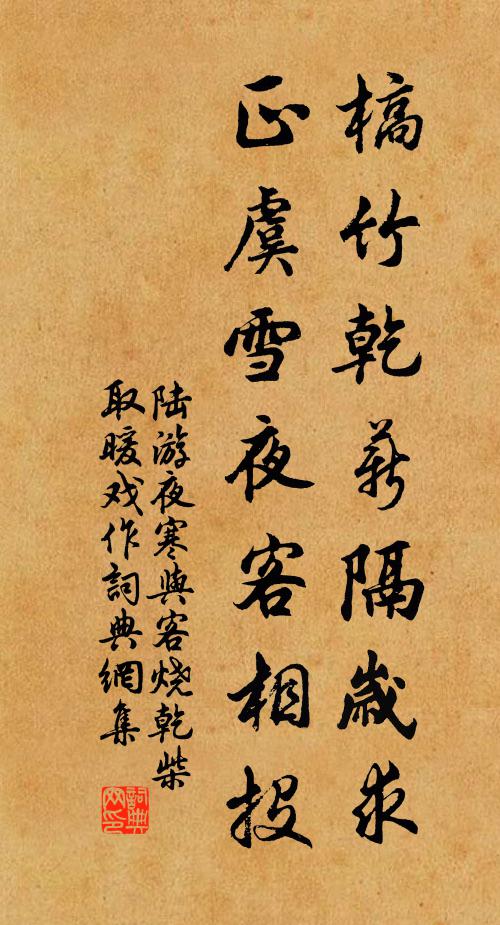 槁竹乾薪隔歲求
正虞雪夜客相投
陆游夜寒與客烧乾柴
取暖戏作詞典網集
詞典
网印